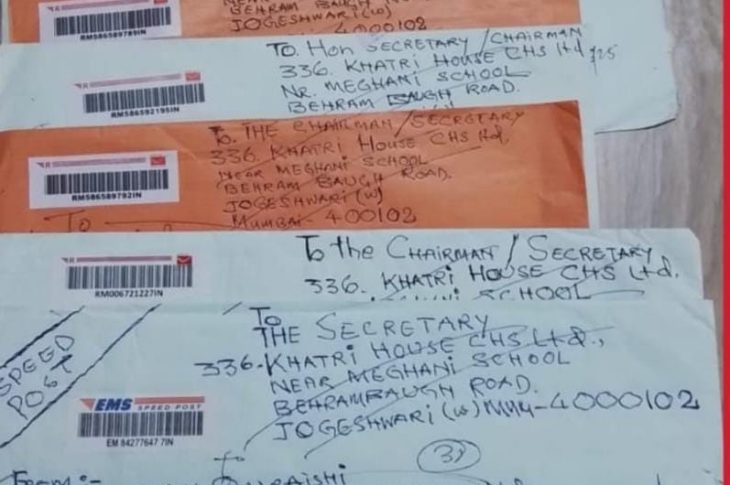 BEHRAM BAUGH
JOGESHWARI (W)
4000102
RM586589789IN
TO. Hon SECRETARY/CHAIRMAN
336. KHATRI HOUSE CHS Ltd
NR. MEGHANI SCHOOL
BEHRAM BAUGH ROAD.
RM586592195IN
To. THE CHAIRMAN/SECRETARY
336. KHATRI HOUSE CHS Ltd.
NEAR MEGHANI SCHOOL
BEHRAM BAUGH ROAD.
JOGESHWARI (W)
MUMBAI 400102
RM586589792IN
To
To the CHAIRMAN/SECRETARY
336. KHATRI HOUSE CHS Ltd.
SCHOOL
RM006721227IN
To
THE SECRETARY
336-KHATRI HOUSE CHS Ltd.,
NEAR MEGHANI SCHOOL
BEHRAMBAUGH ROAD.
JOGESHWARI (W) MUM-4000102
SPEED
POST
EMS SPEED POST
EM 84277647 7IN
From:-
3